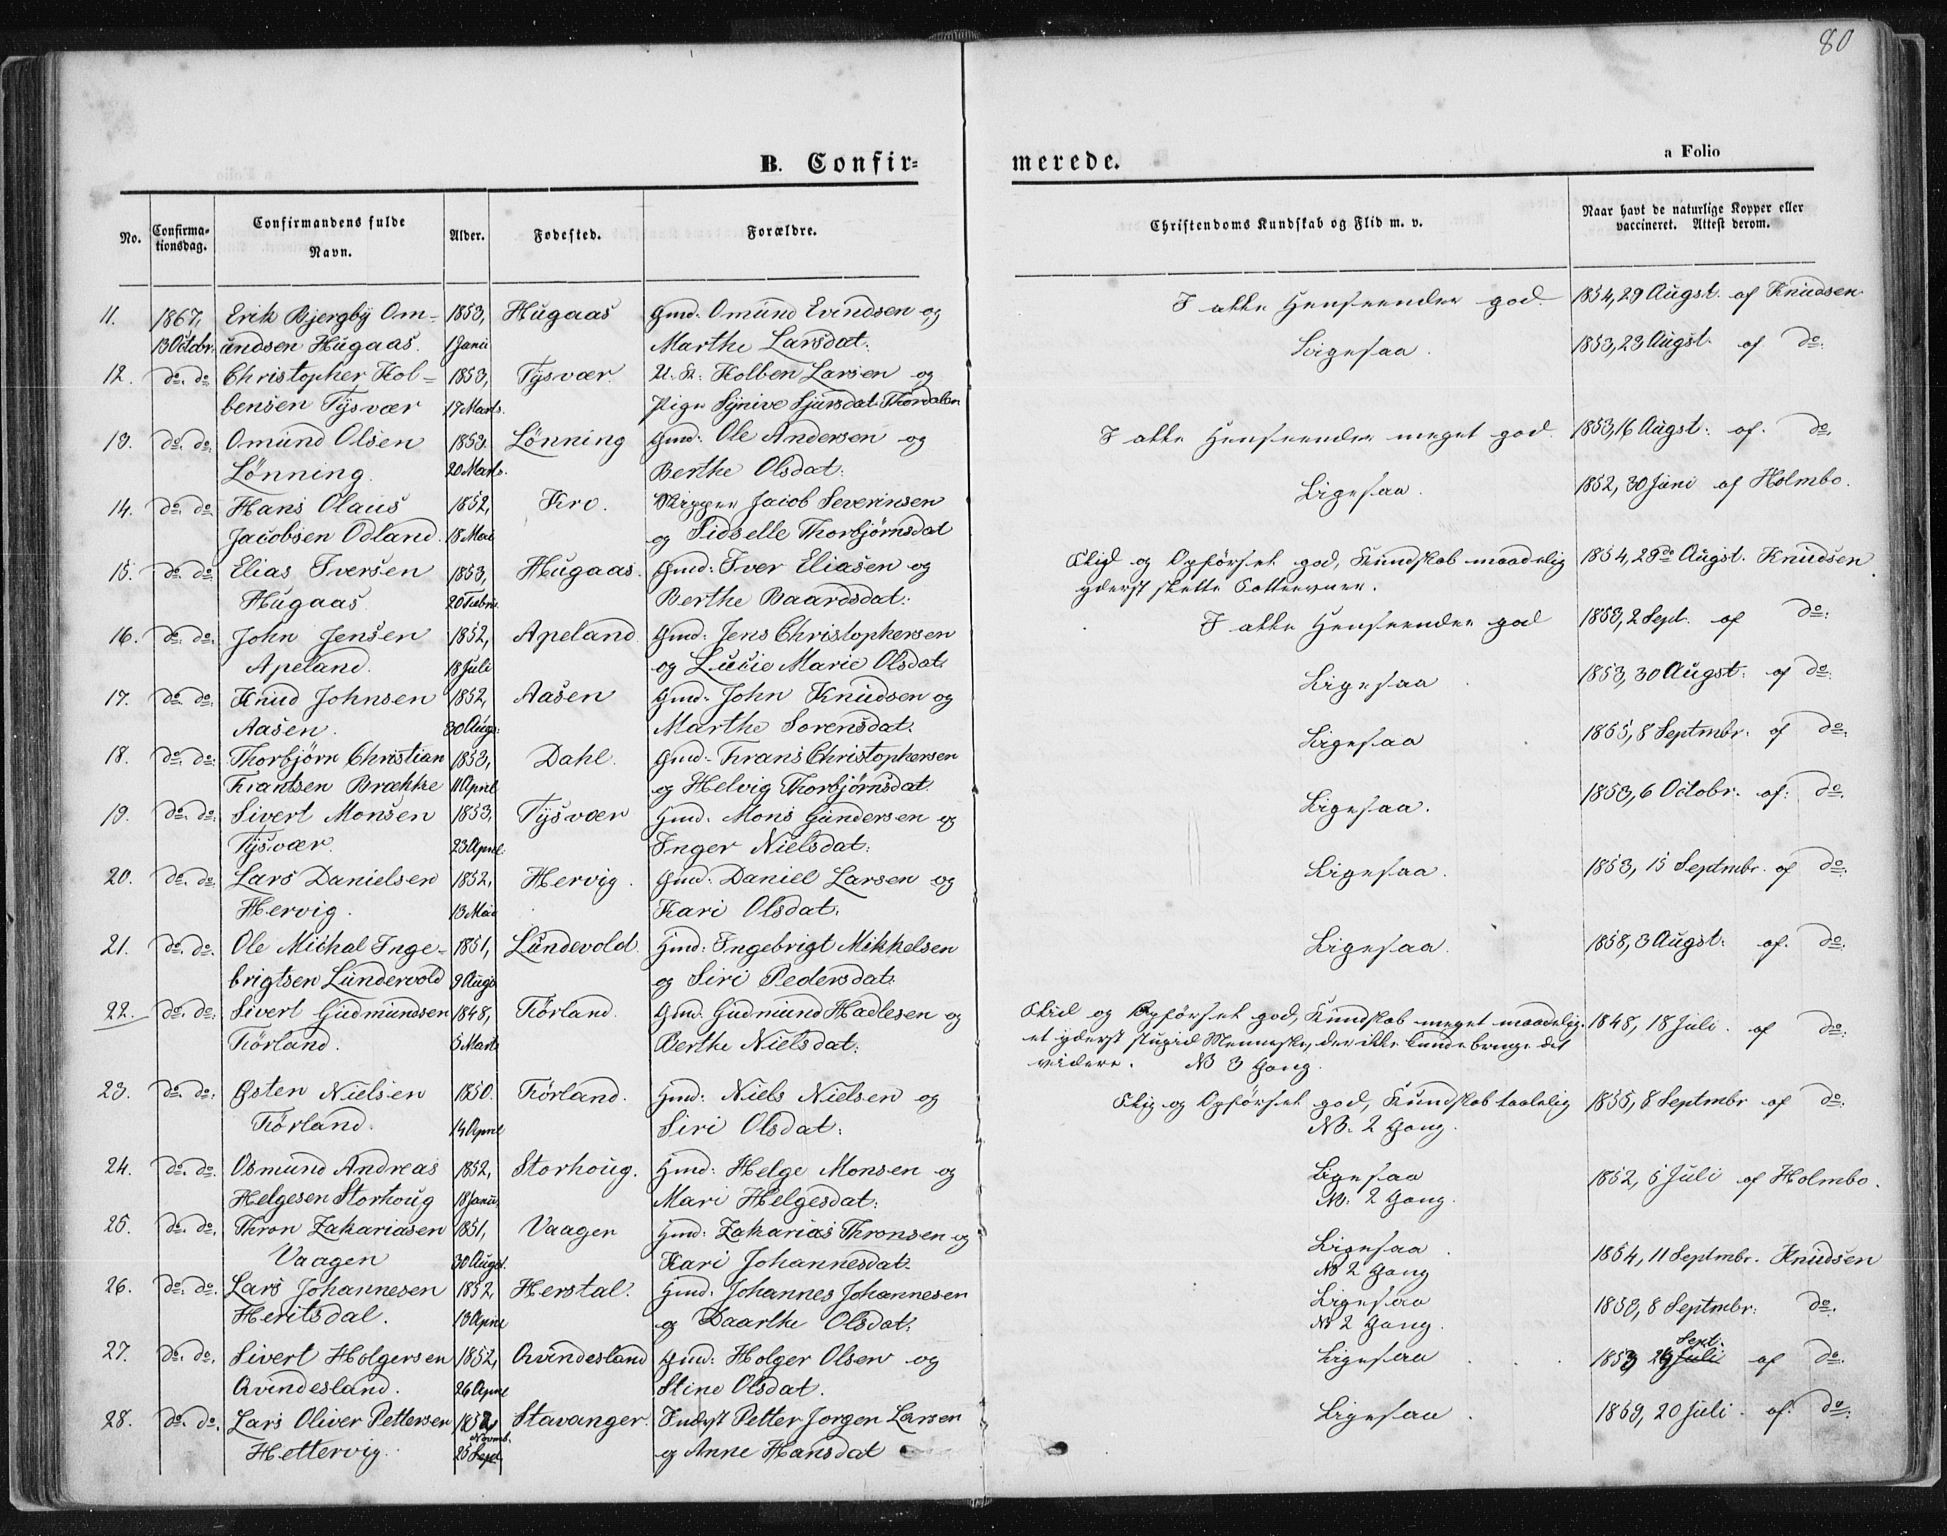 80
B. Confir=
merede.
a Folio
No.
Confirma-
tionsdag.
Confirmandens fulde
Navn.
Alder.
Fødested.
Forældre.
Christendoms Kundskab og Flid m. v.
Naar havt de naturlige Kopper eller
vaccineret. Attest derom.
11. 1867, Erik Bjergby Om- 1853, Hugaas Gmd. Omund Evindsen og I alle Henseender god 1854, 29 Augst. af Knudsen
13 Octobr. undsen Hugaas. 1 Juni Marthe Larsdat:
12. do. do Christopher Kol- 1853, Tysvær. U. St. Kolben Larsen og Ligesaa. 1853, 23 Augst. af do:
bensen Tysvær 17 Marts. Pige Synive Sjursdat.
13. do. do. Omund Olsen 1853. Lønning Gmd: Ole Andersen og I alle Henseender meget god 1853, 16 Augst: af. do.
Lønning. 20 Marts. Berthe Olsdat:
14. do. do Hans Olaus 1852, Skipper Jacob Severinsen Ligesaa. 1852, 30 Juni af Holmbo.
Jacobsen Odland. 18 Mai og Sidselle Thorbjørnsdat
15. do. do. Elias Iversen 1853, Hugaas. Gmd: Iver Eliasen og Flid og Opførsel god, Kundskab maadelig 1854, 29de Augst. Knudsen
Hugaas. 20 Febru. Berthe Baardsdat: yderst slette Fatteevner.
16. do. do. John Jensen 1852, Apeland. Gmd: Jens Christophersen I alle Henseender god 1853, 2 Sept. af do:
Apeland. 18 Juli og Lucie Marie Olsdat.
17. do. do. Knud Johnsen 1852, Aasen Gmd: John Knudsen og Ligesaa 1853, 30 Augst: af do:
Aasen. 30 Augs: Marthe Sorensdat.
18. do. do: Thorbjørn Christian 1853, Dahl. Gmd. Frans Christophersen Ligesaa 1855, 8 Septmbr. af do:
Frantsen Brække 11 April og Helvig Thorbjørnsdat.
19. do. do: Sivert Monsen 1853, Tysvær Gmd. Mons Gundersen og Ligesaa. 1853, 6 Octobr. af: do.
Tysvær. 23 April. Inger Nielsdat:
20. do. do. Lars Danielsen 1852, Hervig. Gmd. Daniel Larsen og Ligesaa. 1853, 15 Septmbr. af do:
Hervig. 13 Mai Kari Olsdat.
21. do. do. Ole Michal Inge- 1851, Lundevold Gmd: Ingebrigt Mikkelsen Ligesaa. 1858, 3 Augst: af. do:
brigtsen Lundervold 9 Augs og Siri Pedersdat:
22. do. do: Sivert Gudmundsen 1848, Førland. Gmd. Gudmund Hadlesen og Flid og Opførsel god, Kundskab meget maadelig. 1848, 18 Juli. af do:
Førland. 5 Marts Berthe Nielsdat: et yderst stupid Menneske, der ikke kunde bringe det
videre. NB 3 Gang.
23. do. do: Østen Nielsen 1850. Førland. Gmd: Niels Nielsen og Flid og Opførsel god, Kundskab taalelig 1855, 8 Septmbr af do:
Førland. 14 April Siri Olsdat: NB: 2 Gang.
24. do. do. Osmund Andreas 1852, Storhoug. Gmd: Helge Monsen og Ligesaa 1852, 5 Juli af Holmbo.
Helgesen Storhoug 18 Janu. Mari Helgesdat: NB: 2 Gang.
25. do. do. Thron Zakariasen 1851, Vaagen Gmd: Zakarias Thronsen og Ligesaa. 1854, 11 Septmbr. Knudsen
Vaagen 30 Augst. Kari Johannesdat. NB 2 Gang
26. do. do. Lars Johannesen 1852, Herstal. Gmd: Johannes Johannesen Ligesaa 1850, 8 Septmbr: do.
Heritsdal. 13 April og Daarthe Olsdat: NB 2 Gang.
27. do. do. Sivert Holgersen 1852, Qvindesland Gmd: Holger Olsen og Ligesaa 1853 Sept. Juli af do:
Qvindesland. 26 April Stine Olsdat.
28. do. do. Lars Oliver Pettersen Stavanger. Inderst Petter Jorgen Larsen Ligesaa. 1869, 20 Juli. af: do:
Novmb.
Hettervig. 25 Sept. og Anne Hansdat